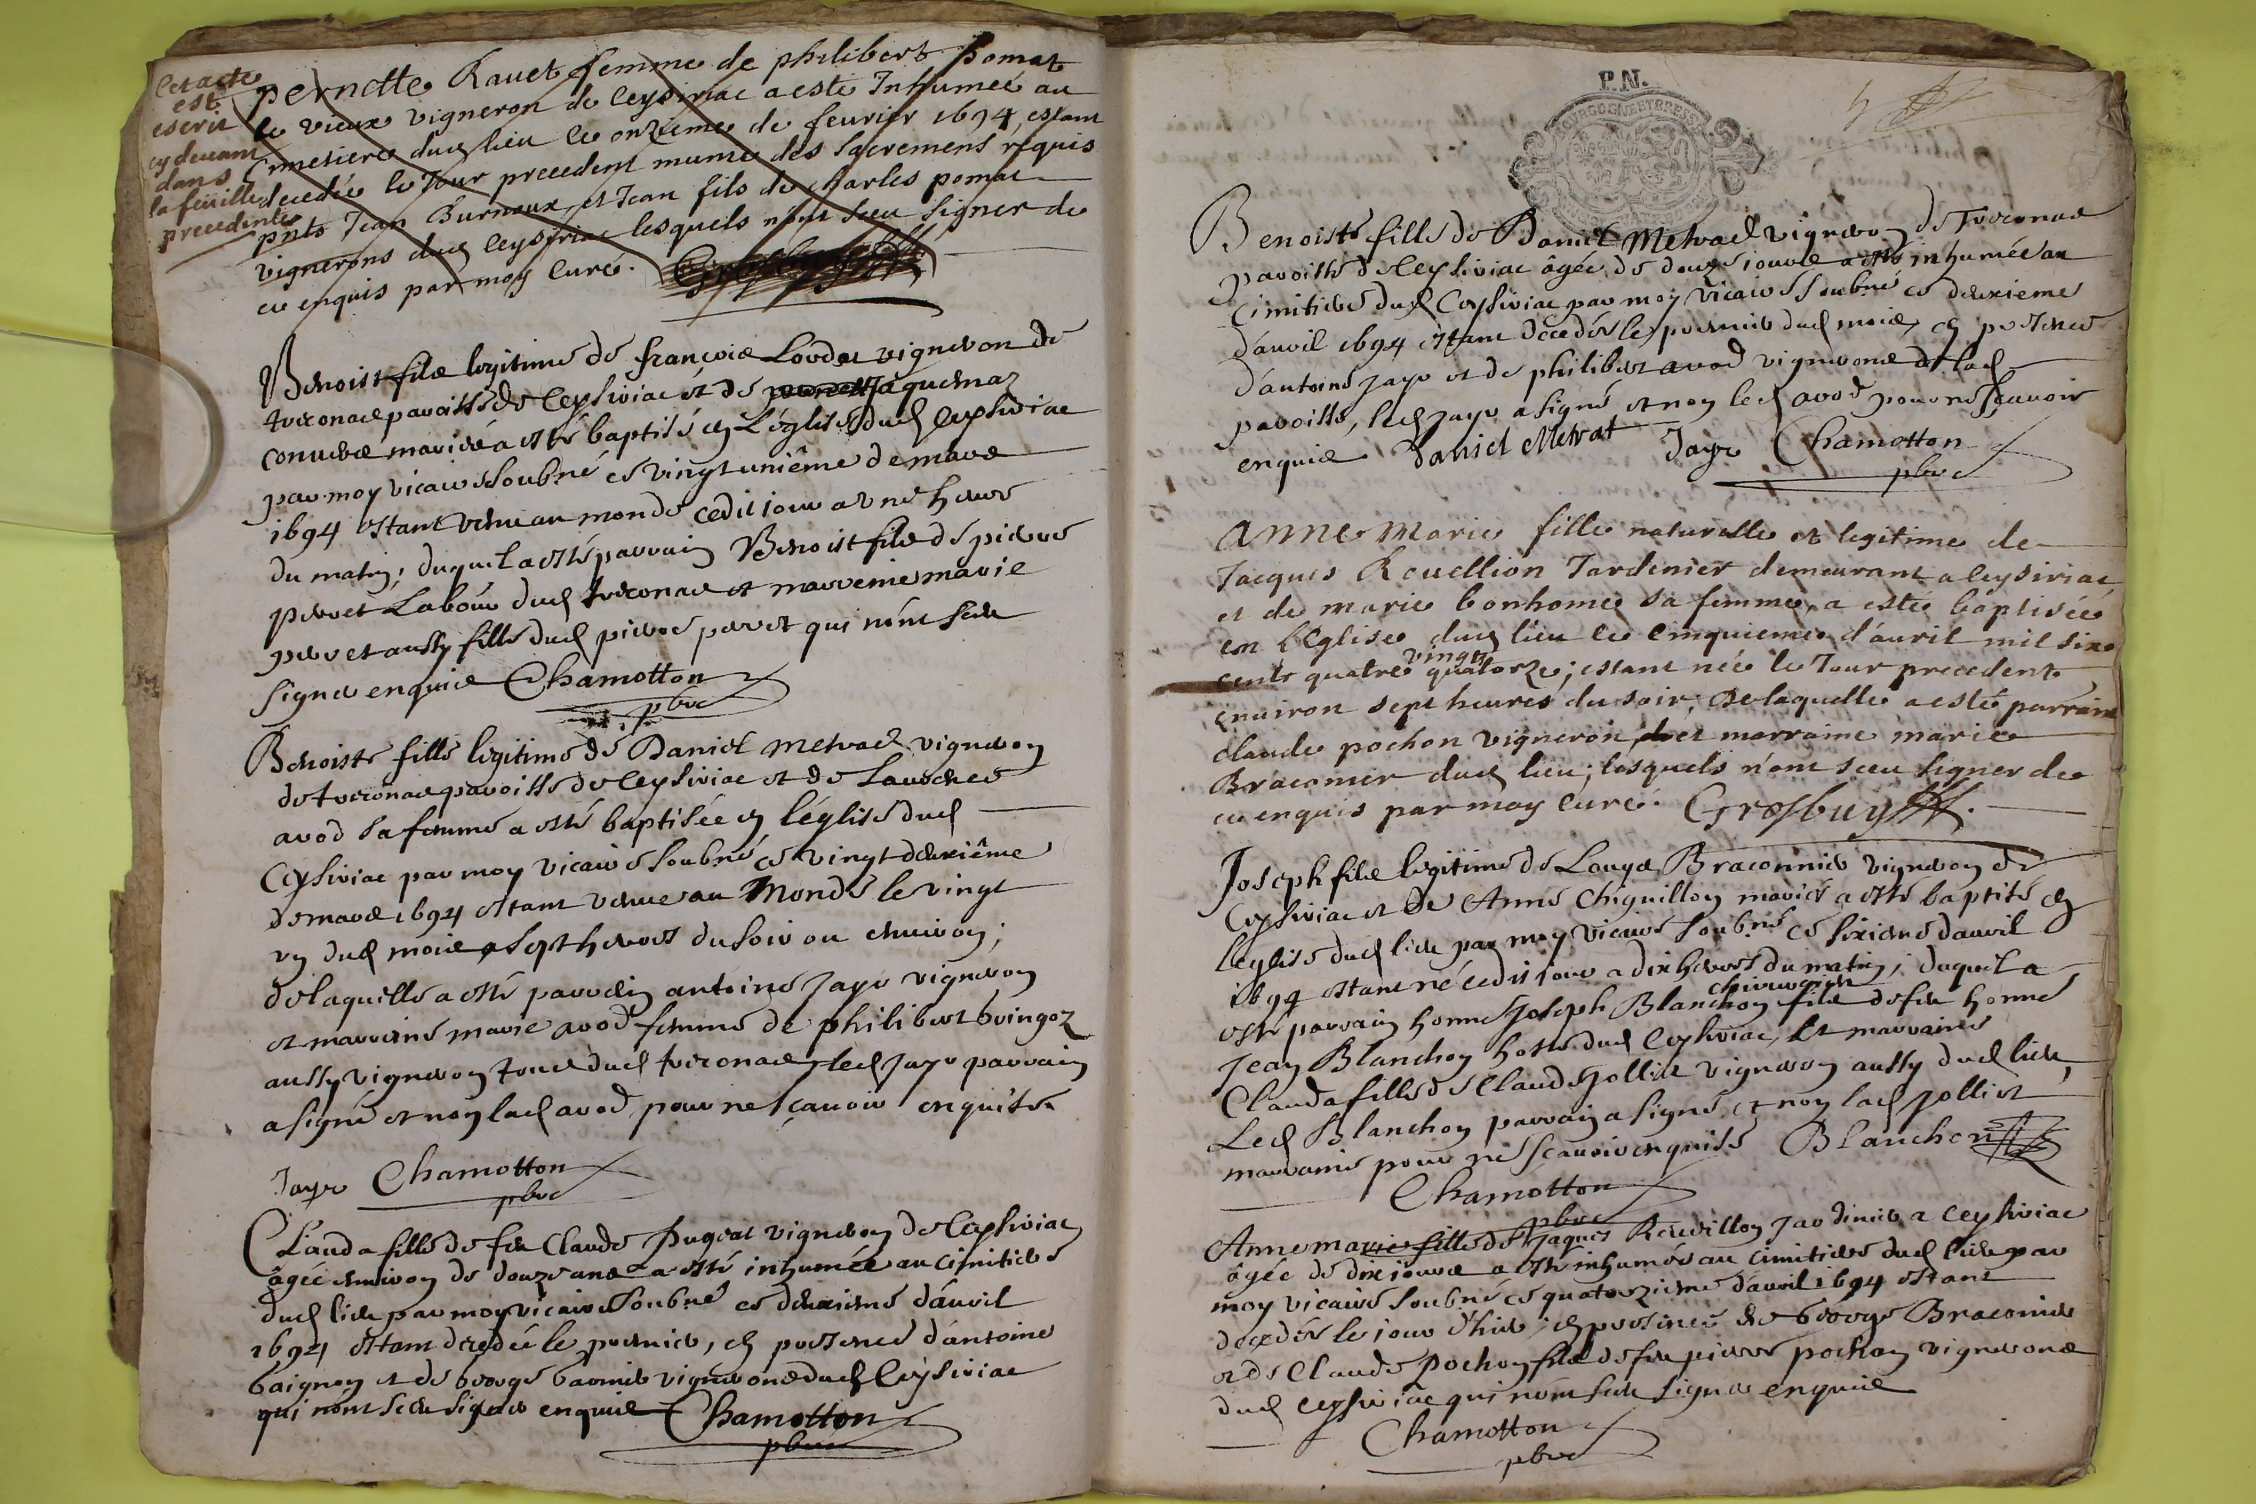 Cet acte
est
escrit
cy devant
dans
la feüille
precedente
pernette Ravet femme de philibert pomat
le vieux vigneron de Ceysiriac a esté Inhumeé au
Cimetiere dud lieu le onzieme de fevrier 1694, estant
decedeé le Jour precedent munie des sacremens requis
pnts Jean Burnoux et Jean fils de charles pomat
vignerons dud Ceysiriac lesquels n'ont sceu signer de
ce enquis par moy Curé.
Benoist fils legitime de françois Loudet vigneron de
treconas paroisse de Ceysiriac et de Jaquemaz
convers mariés a esté baptisé en L'église dud Ceysiriac
par moy vicaire soubné ce vingt unième de mars
1694 estant venu au monde cedit jour a une heure
du matin; duquel a esté parrain Benoist fils de pierre
perret Laboür dud treconas et marreine marie
perret aussy fille dud pierre perret qui n'ont sceu
signer enquis Chamotton
pbre
Benoiste fille legitime de Daniel metrad vigneron
de treconas paroisse de Ceysiriac et de Laurence
avod sa femme a esté baptisée en l'église dud
Ceysiriac par moy vicaire soubné ce vingt deuxième
de mars 1694 estant venue au monde le vingt
un dud mois a sept heures du soir ou environ;
de laquelle a esté parrain antoine Jayr vigneron
et marreine marie avod femme de philibert bringoz
aussy vigneron tous dud treconas led Jayr parrain
a signé et non lad avod pour ne sçavoir enquise
Jayr Chamotton
pbre
Clauda fille de feu Claude Puget vigneron de Ceysiriac
âgée environ de douze ans a esté inhumée au cimitiere
dud lieu par moy vicaire soubné ce deuxieme d'avril
1694 estant decedée le premier, en presence d'antoine
baignon et de george barnier vignerons dud Ceysiriac
qui n'ont sceu signer enquis Chamotton
pbre
P.N.
BOURGOGNE ET BRESSE
Benoiste fille de Daniel Metrad vigneron de Treconas
paroisse de Ceysiriac âgée de douze jours a esté inhumée au
Cimitiere dud Ceysiriac par moy vicaire soubné ce deuxieme
d'avril 1694 estant decedée le premier dud mois, en presence
d'antoine Jayr et de philibert avod vignerons de lad
paroisse, led Jayr a signé et non led avod pour ne sçavoir
enquis Daniel Metrat Jayr Chamotton
pbre
Anne Marie fille naturelle et legitime de
Jacques Revellion Jardinier demeurant a Ceysiriac
et de marie bonhome sa femme, a esté baptiseé
en l'Eglise dud lieu le cinquieme d'avril mil six
vingts
cents quatre quatorze; estant neé le Jour precedent
environ sept heures du soir, de laquelle a esté parrain
claude pochon vigneron et marraine marie
Braconier dud lieu; lesquels n'ont sceu signer de
ce enquis par moy Curé. Grosbuy
Joseph fils legitime de Louys Braconnier vigneron de
Ceysiriac et de Anne Chiguillon mariés a esté baptisé en
l'eglise dud lieu par moy vicaire soubné ce sixieme d'avril
1694 estant né cedit jour a dix heures du matin; duquel a
chirurgien
esté parrain honne Joseph Blanchon fils de feu honne
Jean Blanchon hoste dud Ceysiriac, et marraine
Clauda fille de Claude Jolliet vigneron aussy dud lieu,
Led Blanchon parrain a signé et non lad Jolliet
marraine pour ne sçavoir enquise Blanchon
Chamotton
pbre
Anne marie fille de Jaques Revellion Jardinier a Ceysiriac
âgée de dix jours a esté inhumée au cimitiere dud lieu par
moy vicaire soubné ce quatorzieme d'avril 1694 estant
decedée le jour d'hier, en presence de George Braconier
et de Claude pochon fils de feu pierre pochon vignerons
dud Ceysiriac qui n'ont sceu signer enquis
Chamotton
pbre